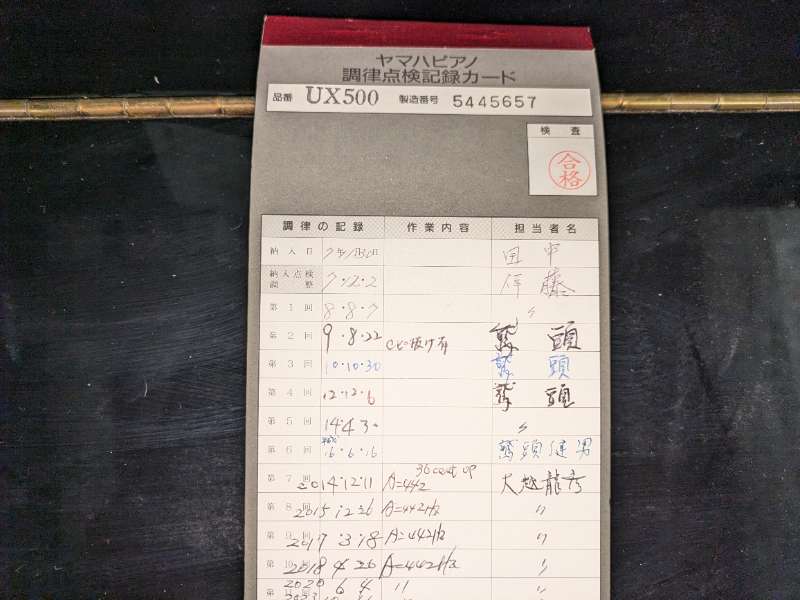 ヤマハピアノ
調律点検記録カード
品番 UX500 製造番号 5445657
検査
合格
調律の記録 作業内容 担当者名
納入日 田中
納入点検調整 7・12・2 伊藤
第1回 8・8・7 〃
第2回 9・8・22 鷲頭
第3回 10・10・30 鷲頭
第4回 12・12・6 鷲頭
第5回 14・4・30 〃
第6回 平成16・6・16 鷲頭健男
第7回 2014・12・11 36cent up A=442 大越龍彦
第8回 2015 12 26 A=442Hz 〃
第9回 2017・3・18 A=442Hz 〃
第10回 2018 4 26 A=442Hz 〃
2020 6 4 〃 〃